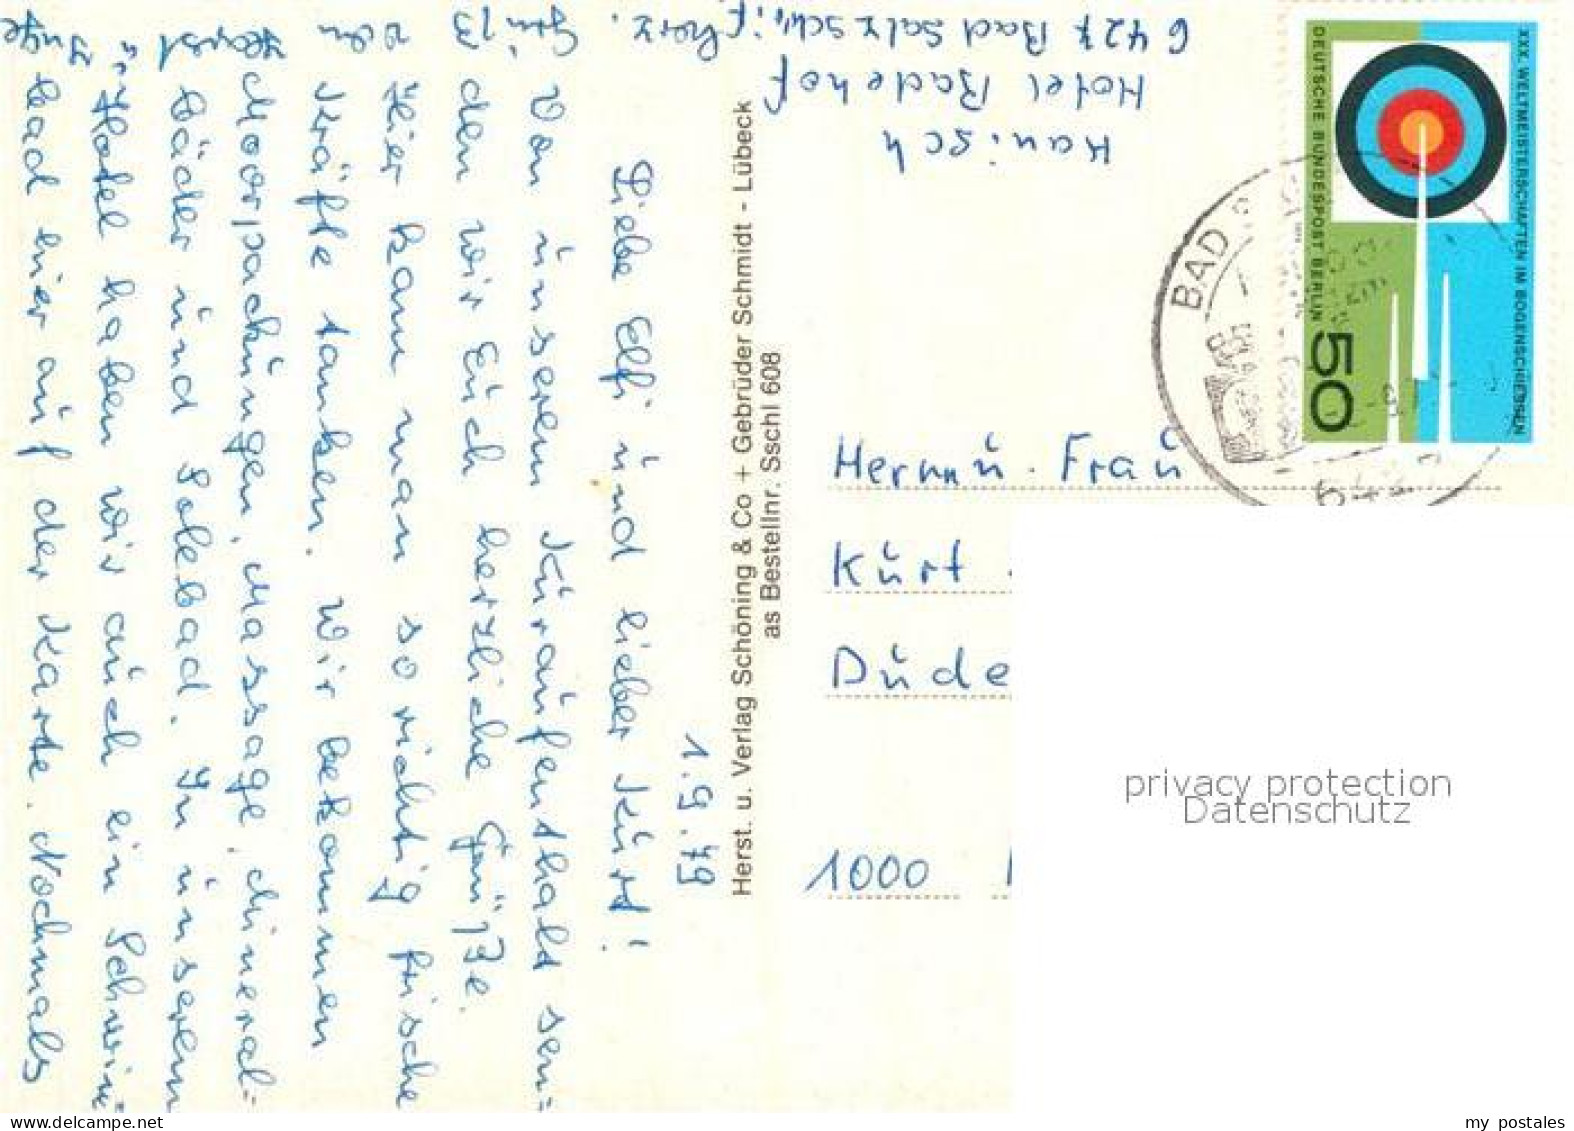 1.9.79
Liebe Elfi und lieber Kurt!
Von unserem Kuraufenthalt sen=
den wir Euch herzliche Grüße.
Hier kann man so richtig frische
Kräfte tanken. Wir bekommen
Moorpackungen, Massage, Mineral=
bäder und Solebad. In unserem
Hotel haben wir auch ein Schwimm=
bad hier auf der Karte. Nochmals
Horst
Inge
Herst. u. Verlag Schöning & Co + Gebrüder Schmidt - Lübeck
as Bestellnr. Sschl 608
Hanisch
Hotel Badehof
6427 Bad Salzschlirf
XXX. WELTMEISTERSCHAFTEN IM BOGENSCHIESSEN
DEUTSCHE BUNDESPOST BERLIN
50
BAD
642
Herrn u. Frau
Kurt
Dude
1000
privacy protection
Datenschutz
my postales